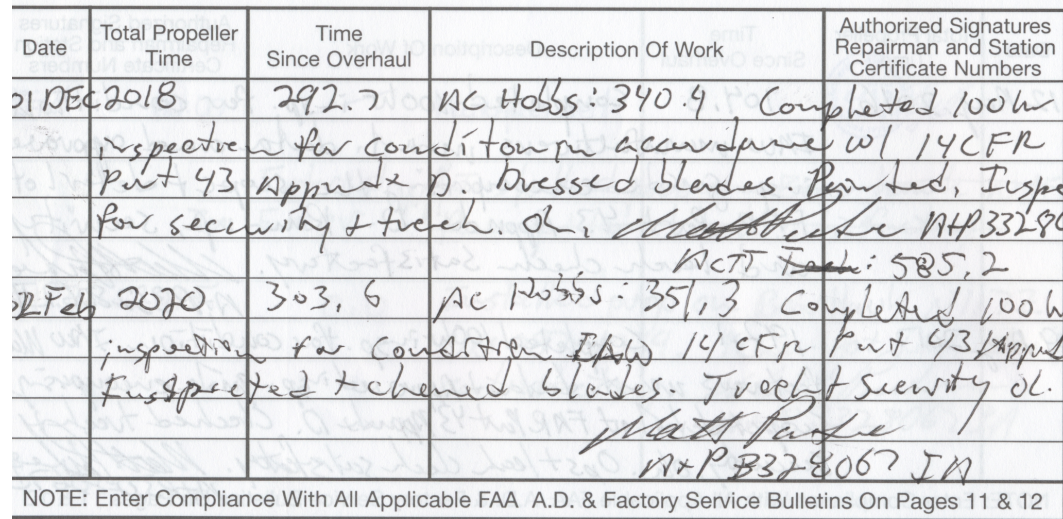 Date Total Propeller Time Time Since Overhaul Description Of Work Authorized Signatures Repairman and Station Certificate Numbers
01 DEC 2018 292.7 AC Hobbs: 340.4, Completed 100 hr
inspection for condition in accordance w/ 14 CFR
Part 43 Appendix D. Dressed blades, Painted, Insp
for security + track. ok. A+P 33280
ACTT : 585.2
Feb 2020 303.6 AC Hobbs: 351.3 Completed 100 h
inspection for condition IAW 14 CFR Part 43 Append
Inspected + cleaned blades. Track + Security ok.
A+P 3328067 IA
NOTE: Enter Compliance With All Applicable FAA A.D. & Factory Service Bulletins On Pages 11 & 12